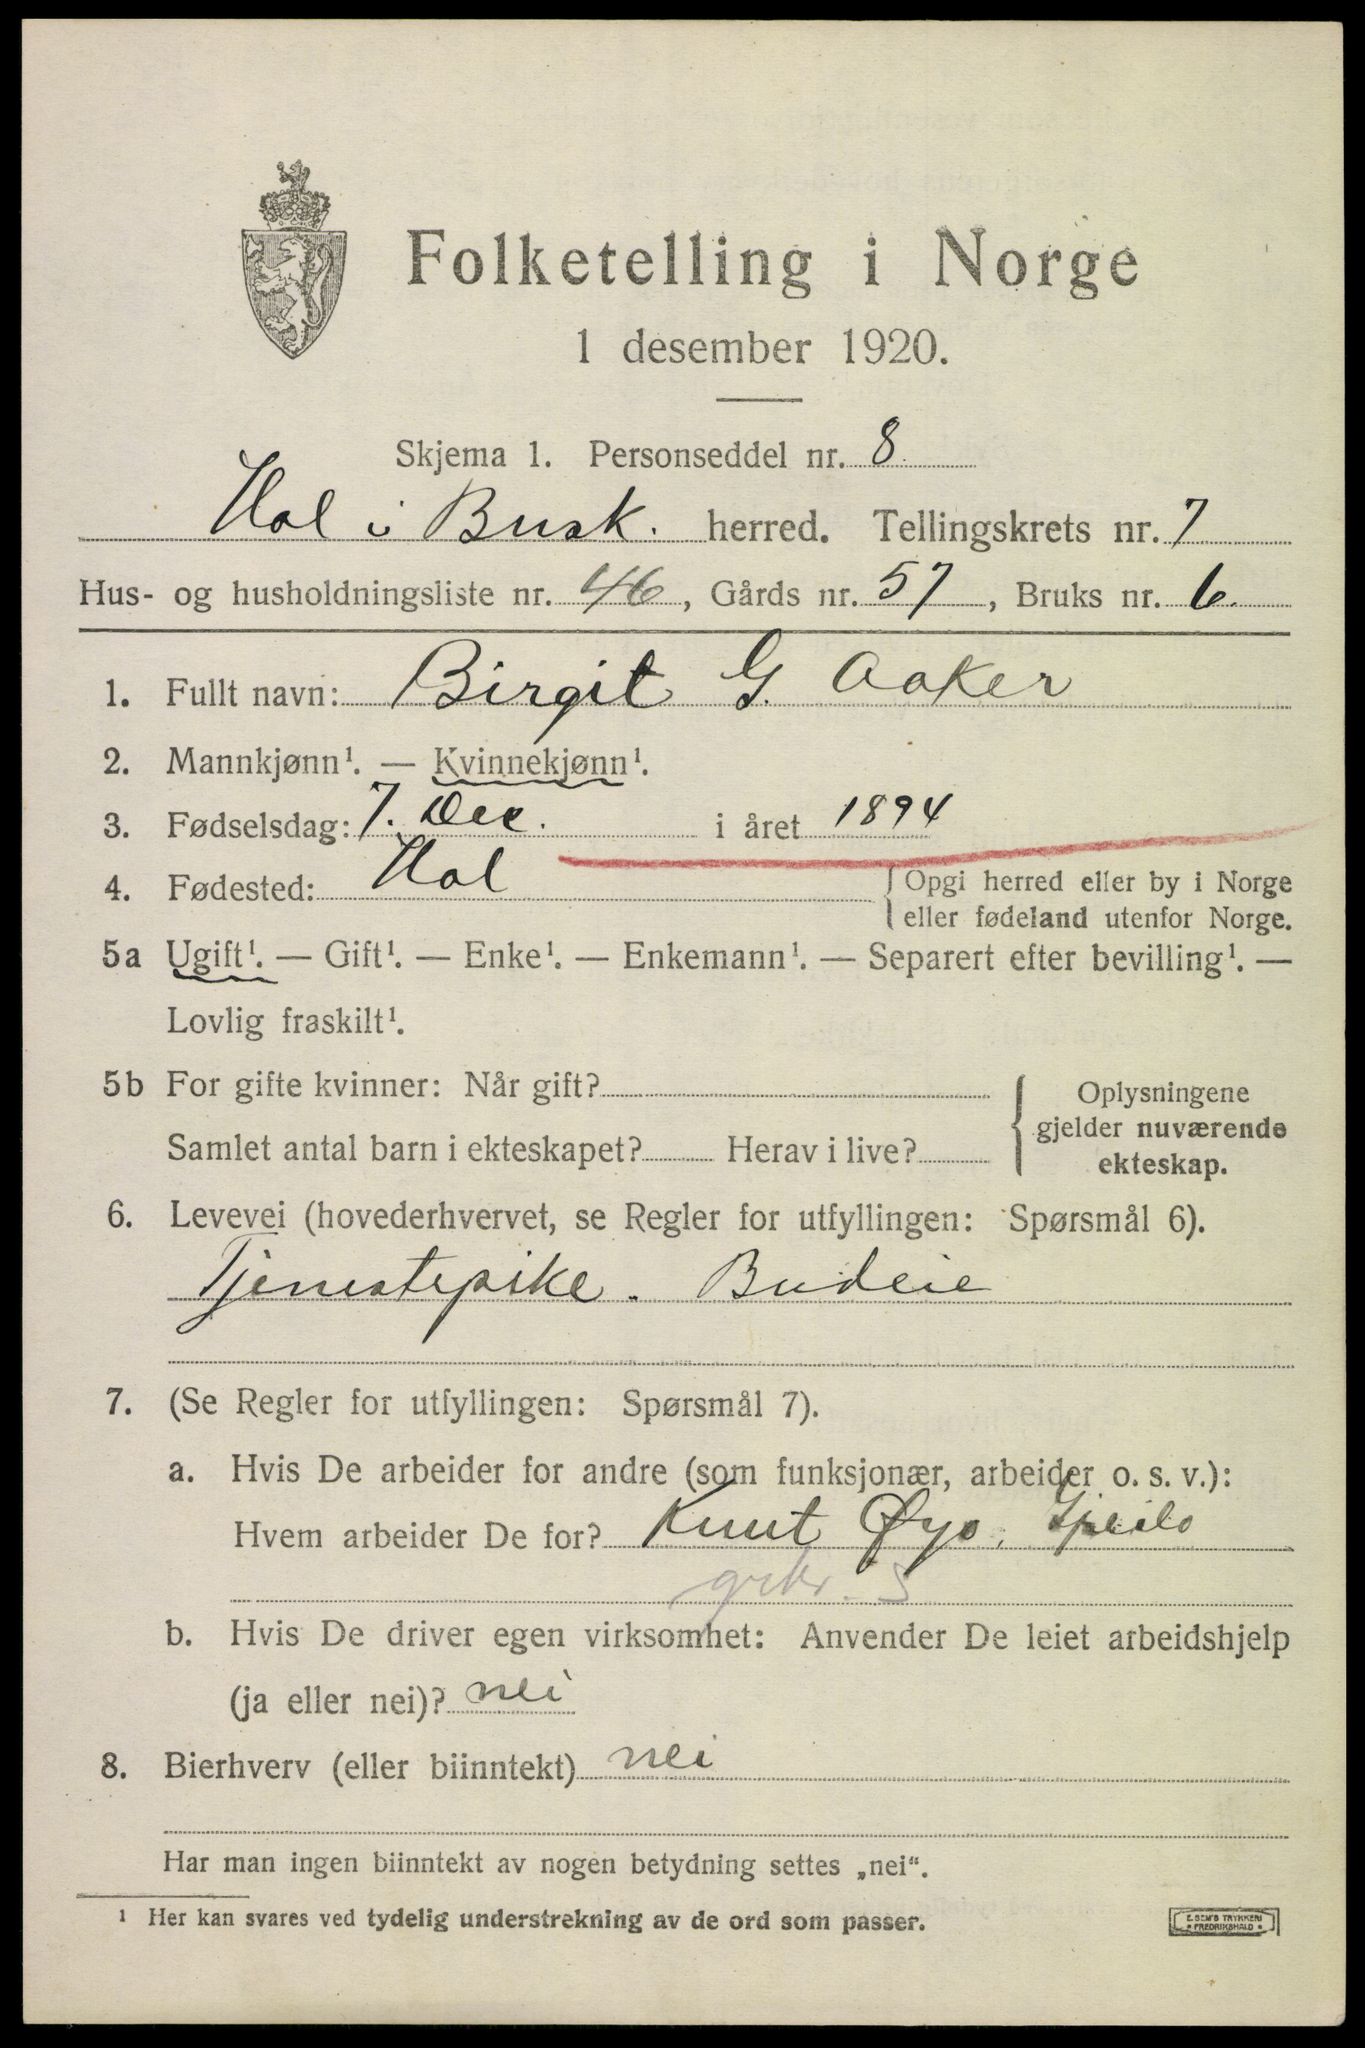 Folketelling i Norge
1 desember 1920.
Skjema 1. Personseddel nr. 8
Hol i Busk. herred. Tellingskrets nr. 7
Hus- og husholdningsliste nr. 46, Gårds nr. 57, Bruks nr. 6.
1. Fullt navn: Birgit G. Aaker
2. Mannkjønn¹. — Kvinnekjønn¹.
3. Fødselsdag: 7. Dec. i året 1894
4. Fødested: Hol {Opgi herred eller by i Norge
eller fødeland utenfor Norge.
5a Ugift¹. — Gift¹. — Enke¹. — Enkemann¹. — Separert efter bevilling¹. —
Lovlig fraskilt¹.
5b For gifte kvinner: Når gift?
Samlet antal barn i ekteskapet? Herav i live?
{Oplysningene
gjelder nuværende
ekteskap.
6. Levevei (hovederhvervet, se Regler for utfyllingen: Spørsmål 6).
Tjenestepike. Budeie
7. (Se Regler for utfyllingen: Spørsmål 7).
a. Hvis De arbeider for andre (som funksjonær, arbeider o. s. v.):
Hvem arbeider De for? Knut Øyo,
b. Hvis De driver egen virksomhet: Anvender De leiet arbeidshjelp
(ja eller nei)? nei
8. Bierhverv (eller biinntekt) nei
Har man ingen biinntekt av nogen betydning settes „nei“.
¹ Her kan svares ved tydelig understrekning av de ord som passer.
E. SEM'S TRYKKERI
FREDRIKSHALD